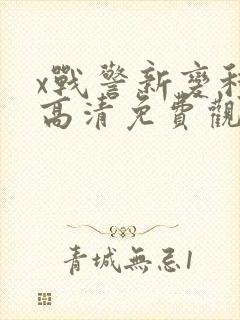 x戰警新變種
高清免費觀
青城無忌1